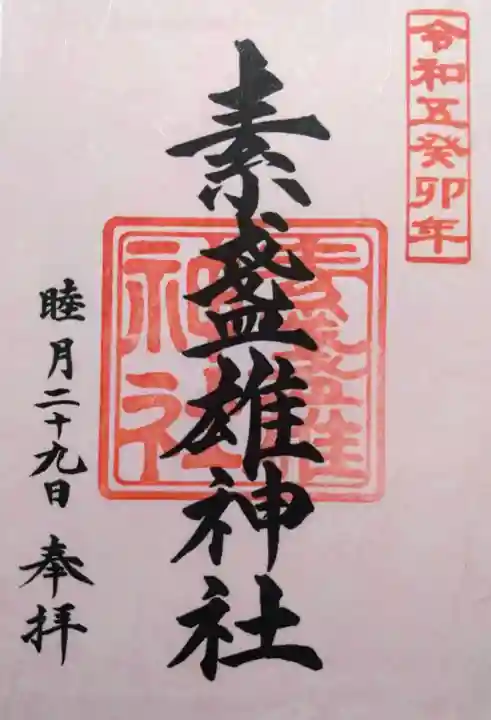 令和五癸卯年
素盞雄神社
素盞雄
神社
睦月二十九日 奉拝